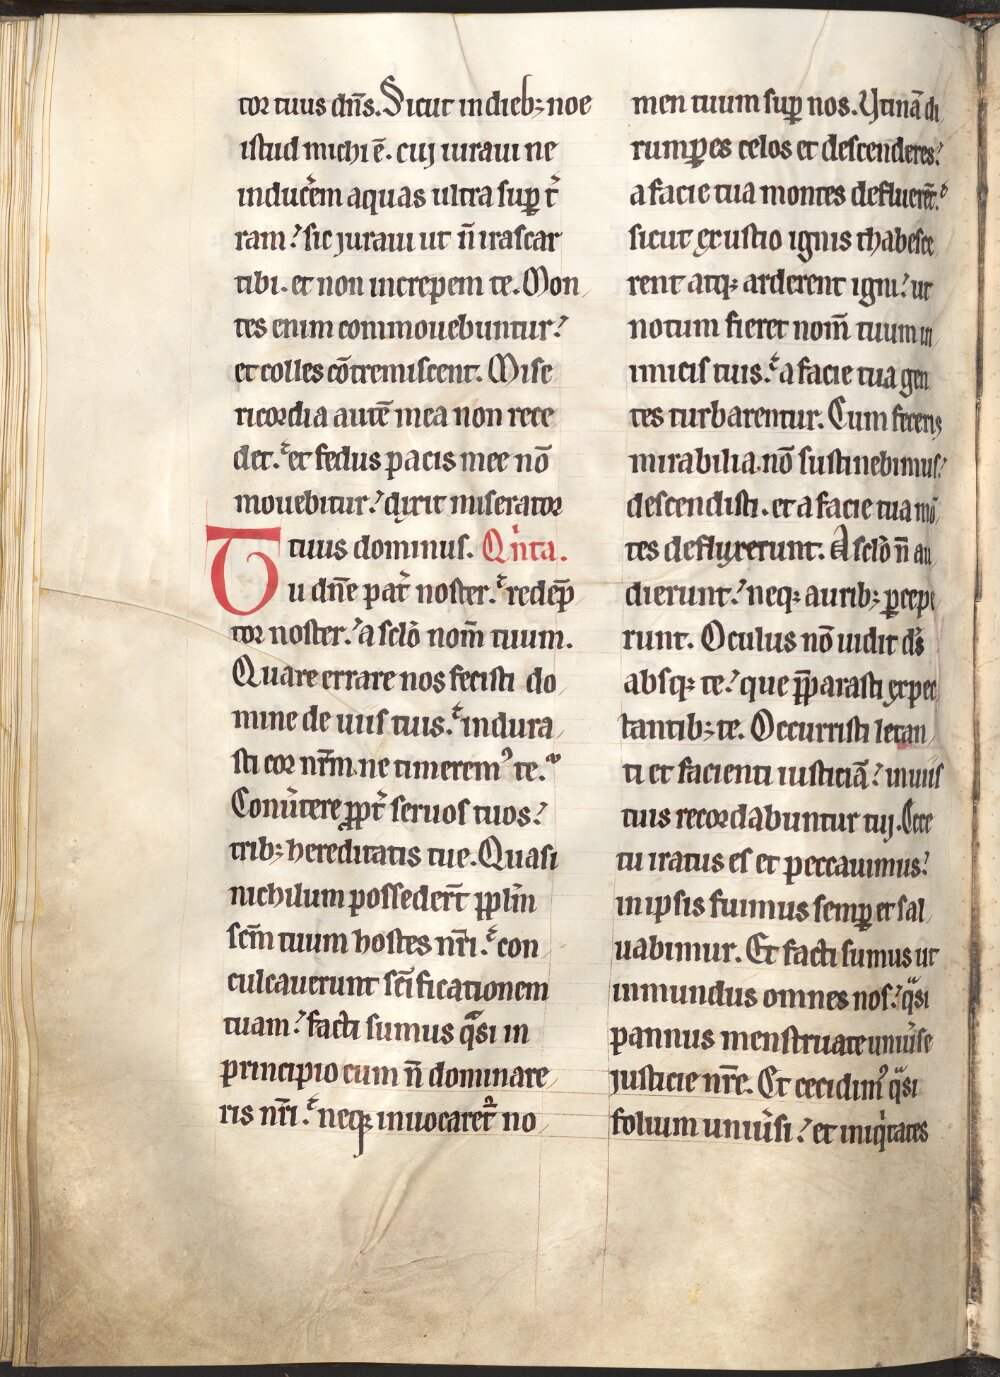 tor tuus dn̄s. Sicut in dieb; noe
istud michi ē. cuj iuraui ne
inducˀem aquas ultra suꝑ tˀ
ram? sic juraui ut n̄ irascar
tibi. et non increpem te. Mon
tes enim commouebuntur?
et colles cōtremiscent. Mise
ricordia autē mea non rece
det. et fedus pacis mee nō
mouebitur? dixit miserator
tuus dominus. Qˀnta.
Tu dn̄e patˀ noster. redēp
tor noster? a sclo nom̄ tuum.
Quare errare nos fecisti do
mine de uiis tuis. indura
sti cor nr̄m. ne timeremꝰ te.
Conuˀtere ꝓptˀ seruos tuos?
trib; hereditatis tue. Quasi
nichilum possedert̄ pplm̄
scm̄ tuum hostes nr̄i. con
culcauerunt sc̄ificationem
tuam? facti sumus qᵃsi in
principio cum n̄ dominare
ris nr̄i. neqꝫ inuocaret̄ no
men tuum suꝑ nos. Utinā di
rumꝑes celos et descenderes?
a facie tua montes defluerēt.
sicut exustio ignis thabesce
rent atqꝫ arderent igni? ut
notum fieret nom̄ tuum in
imicis tuis. a facie tua gen
tes turbarentur. Cum feceris
mirabilia. nō sustinebimus?
descendisti. et a facie tua mō
tes defluxerunt. A sclo n̄ au
dierunt? neqꝫ aurib; ꝑcepe
runt. Oculus nō uidit ds̄
absqꝫ te? que p̄parasti expec
tantib; te. Occurristi letan
ti et facienti iusticiā? in uiis
tuis recordabuntur tuj. Ecce
tu iratus es et peccauimus?
in ipsis fuimus semꝑ et sal
uabimur. Et facti sumus ut
inmundus omnes nos? qᵃsi
pannus menstruate uniuˀse
justicie nr̄e. Et cecidimꝰ qᵃsi
folium uniuˀsi? et iniqⁱtates